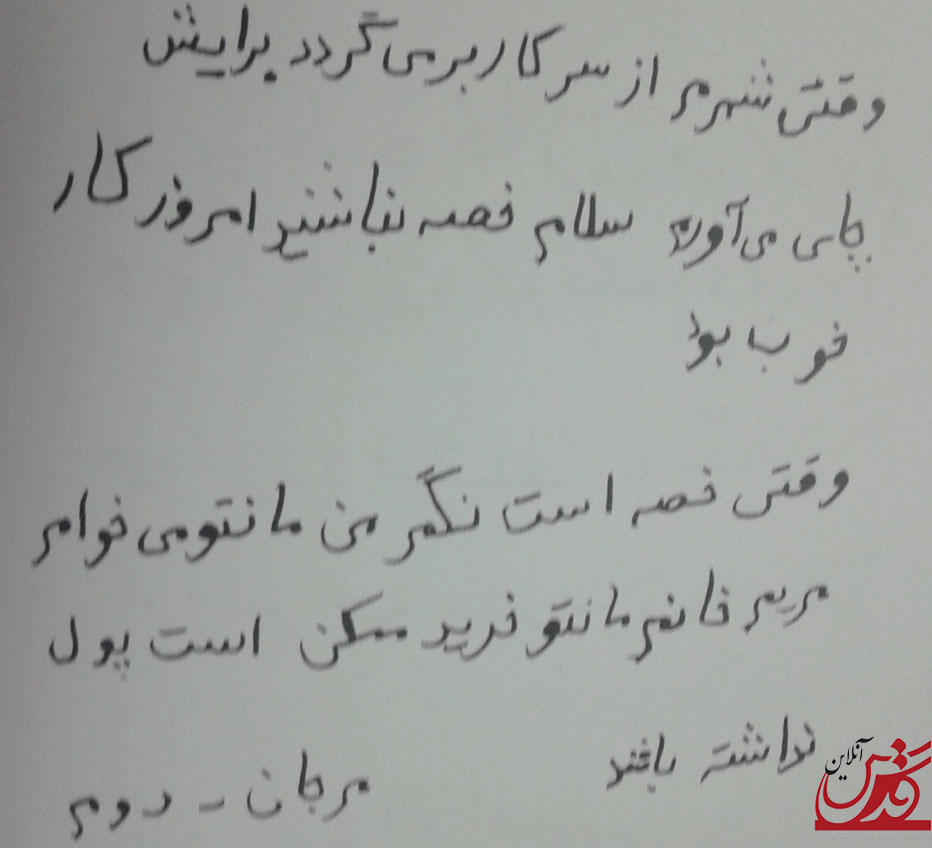 وقتی شهرم از سر کار بر می گردد برایش
چای می آورم سلام خصه نباشید امروز کار
خوب بود
وقتی خصه است نگم من مانتو می خوام
مریم خانم مانتو خرید ممکن است پول
نداشته باشد
مرجان - دوم
قدس آنلاین